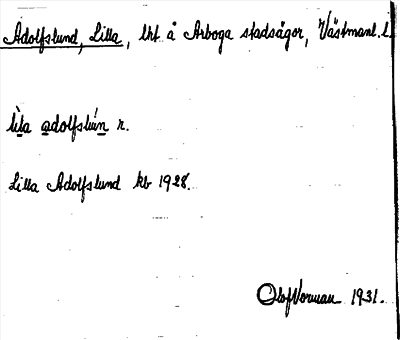 Adolfslund, Lilla, lht å Arboga stadsägor, Västmanl. l.
lìla adolfslún r.
Lilla Adolfslund kb 1928.
Olof Norman 1931.